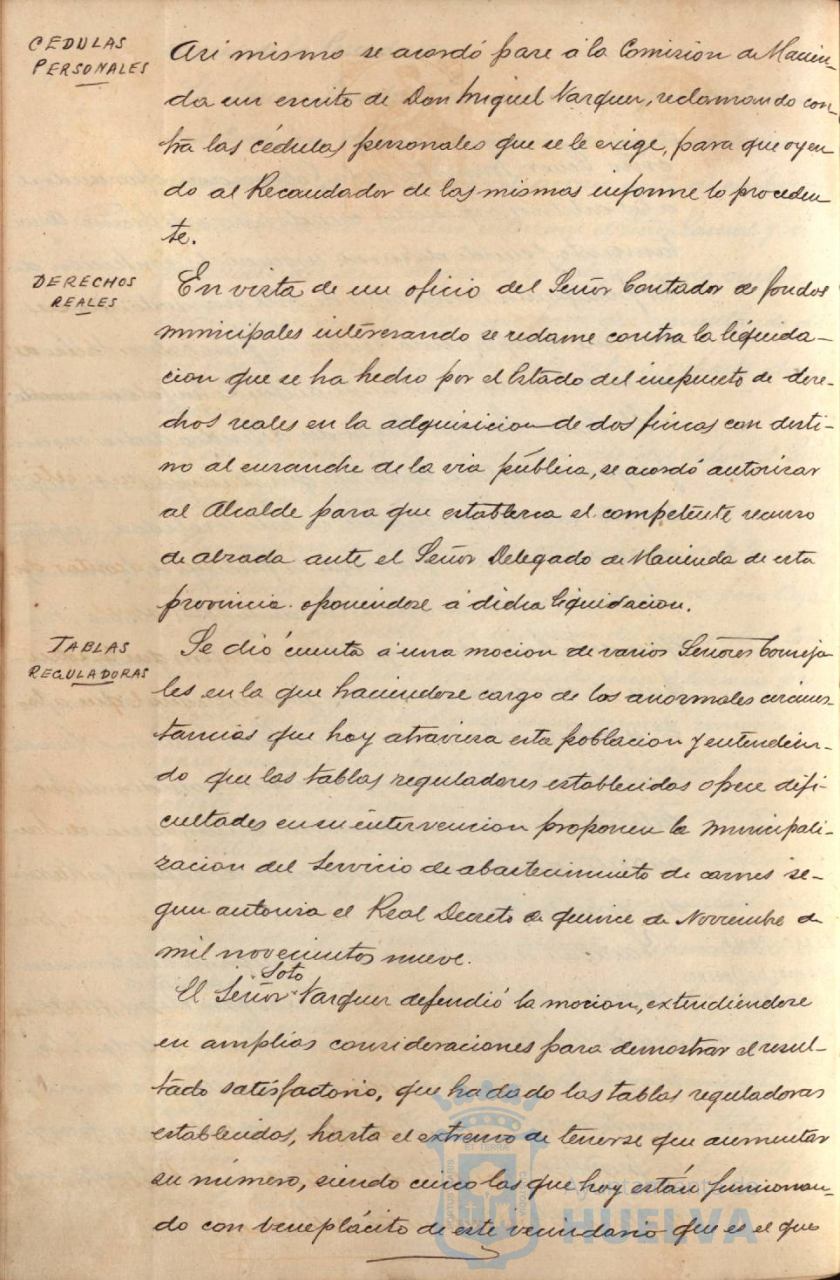 CEDULAS
PERSONALES
Asi mismo se acordó pase á la Comision de Hacien-
da un escrito de Don Miguel Vazquez, reclamando con-
tra las cédulas personales que se le exige, para que oyen
do al Recaudador de las mismas informe lo proceden
te.
DERECHOS
REALES
En vista de un oficio del Señor Contador de fondos
municipales interesando se reclame contra la liquida-
cion que se ha hecho por el Estado del impuesto de dere-
chos reales en la adquisicion de dos fincas con desti-
no al ensanche de la via pública, se acordó autorizar
al Alcalde para que establezca el competente recurso
de alzada ante el Señor Delegado de Hacienda de esta
provincia oponiendose á dicha liquidacion.
TABLAS
REGULADORAS
Se dió cuenta á una mocion de varios Señores Conceja
les en la que haciendose cargo de las anormales circuns
tancias que hoy atraviesa esta poblacion y entendien-
do que las tablas reguladores establecidas ofrece difi-
cultades en su intervencion proponen la municipali-
zacion del servicio de abastecimiento de carnes se-
gun autoriza el Real Decreto de quince de Noviembre de
mil novecientos nueve.
Soto
El Señor Vazquez defendió la mocion, extendiendose
en amplias consideraciones para demostrar el resul-
tado satisfactorio, que ha dado las tablas reguladoras
establecidas, hasta el extremo de tenerse que aumentar
su número, siendo cinco las que hoy están funcionan-
do con beneplácito de este vecindario que es el que
Ayuntamiento de
HUELVA